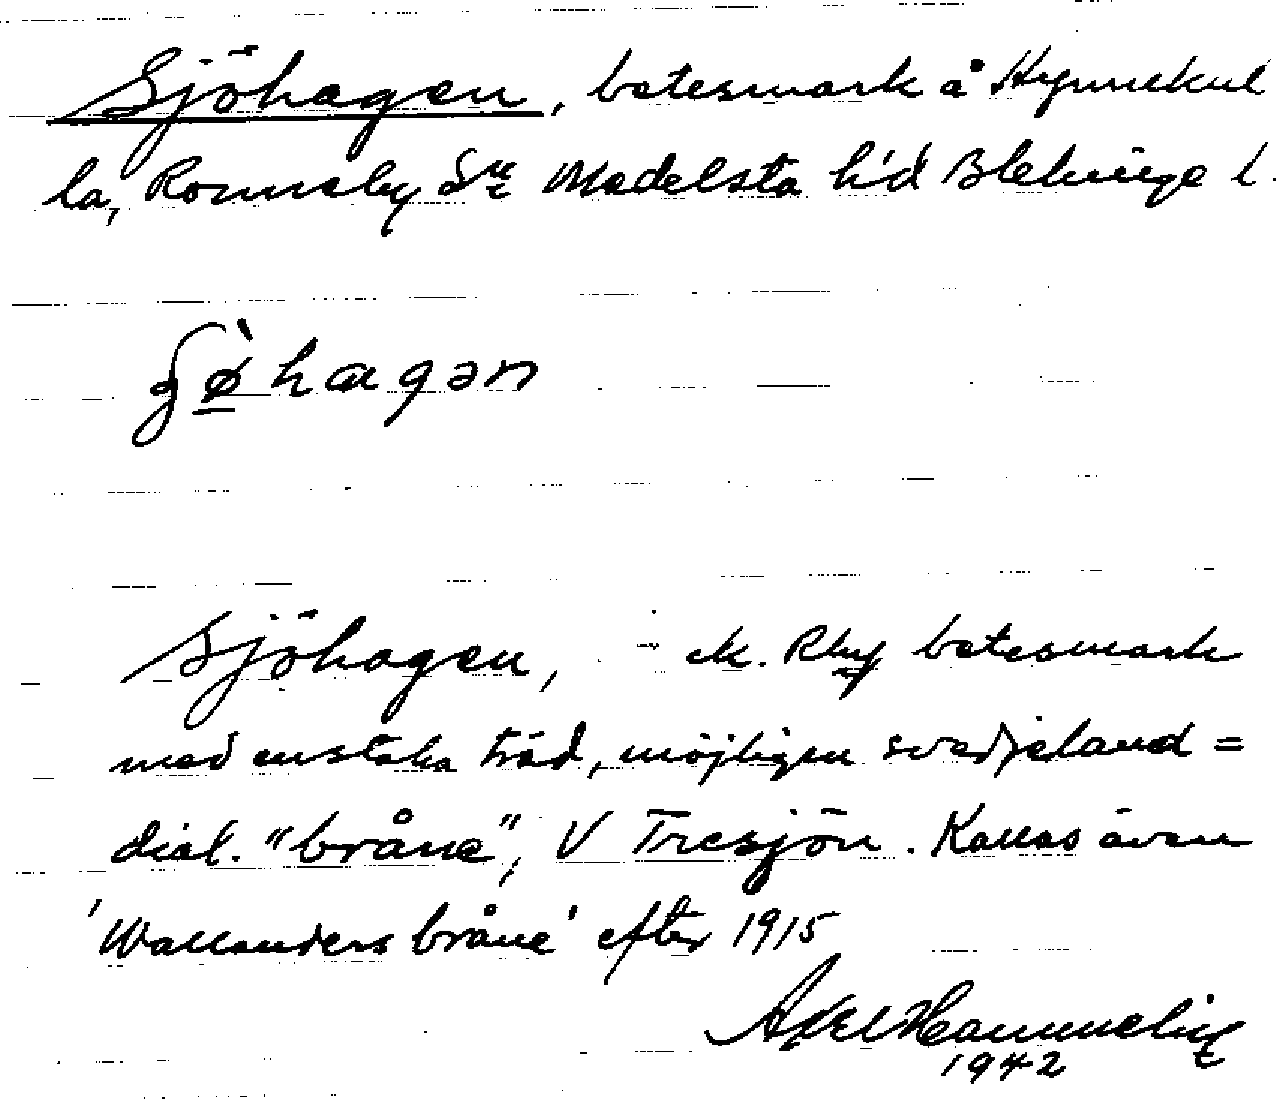 Sjöhagen, betesmark å Hynnekul
la, Ronneby Sn Medelsta h'd Blekinge l.
ʃø̀hagən
Sjöhagen, - ek. Rby betesmark
med enstaka träd, möjligen svedjeland =
dial. "bråne", V Tresjön. Kallas även
'Wallanders bråne' efter 1915
Axel
1942